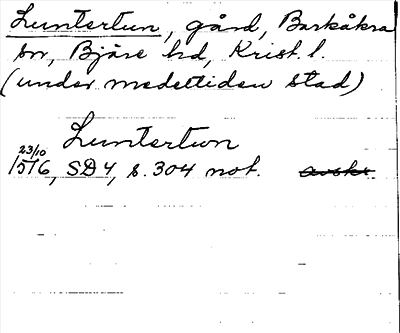 Luntertun, gård, Barkåkra
sn, Bjäre hd, Krist. l.
(under medeltiden stad)
Luntertun
23/10
1516, SD 4, s. 304 not. avskr.